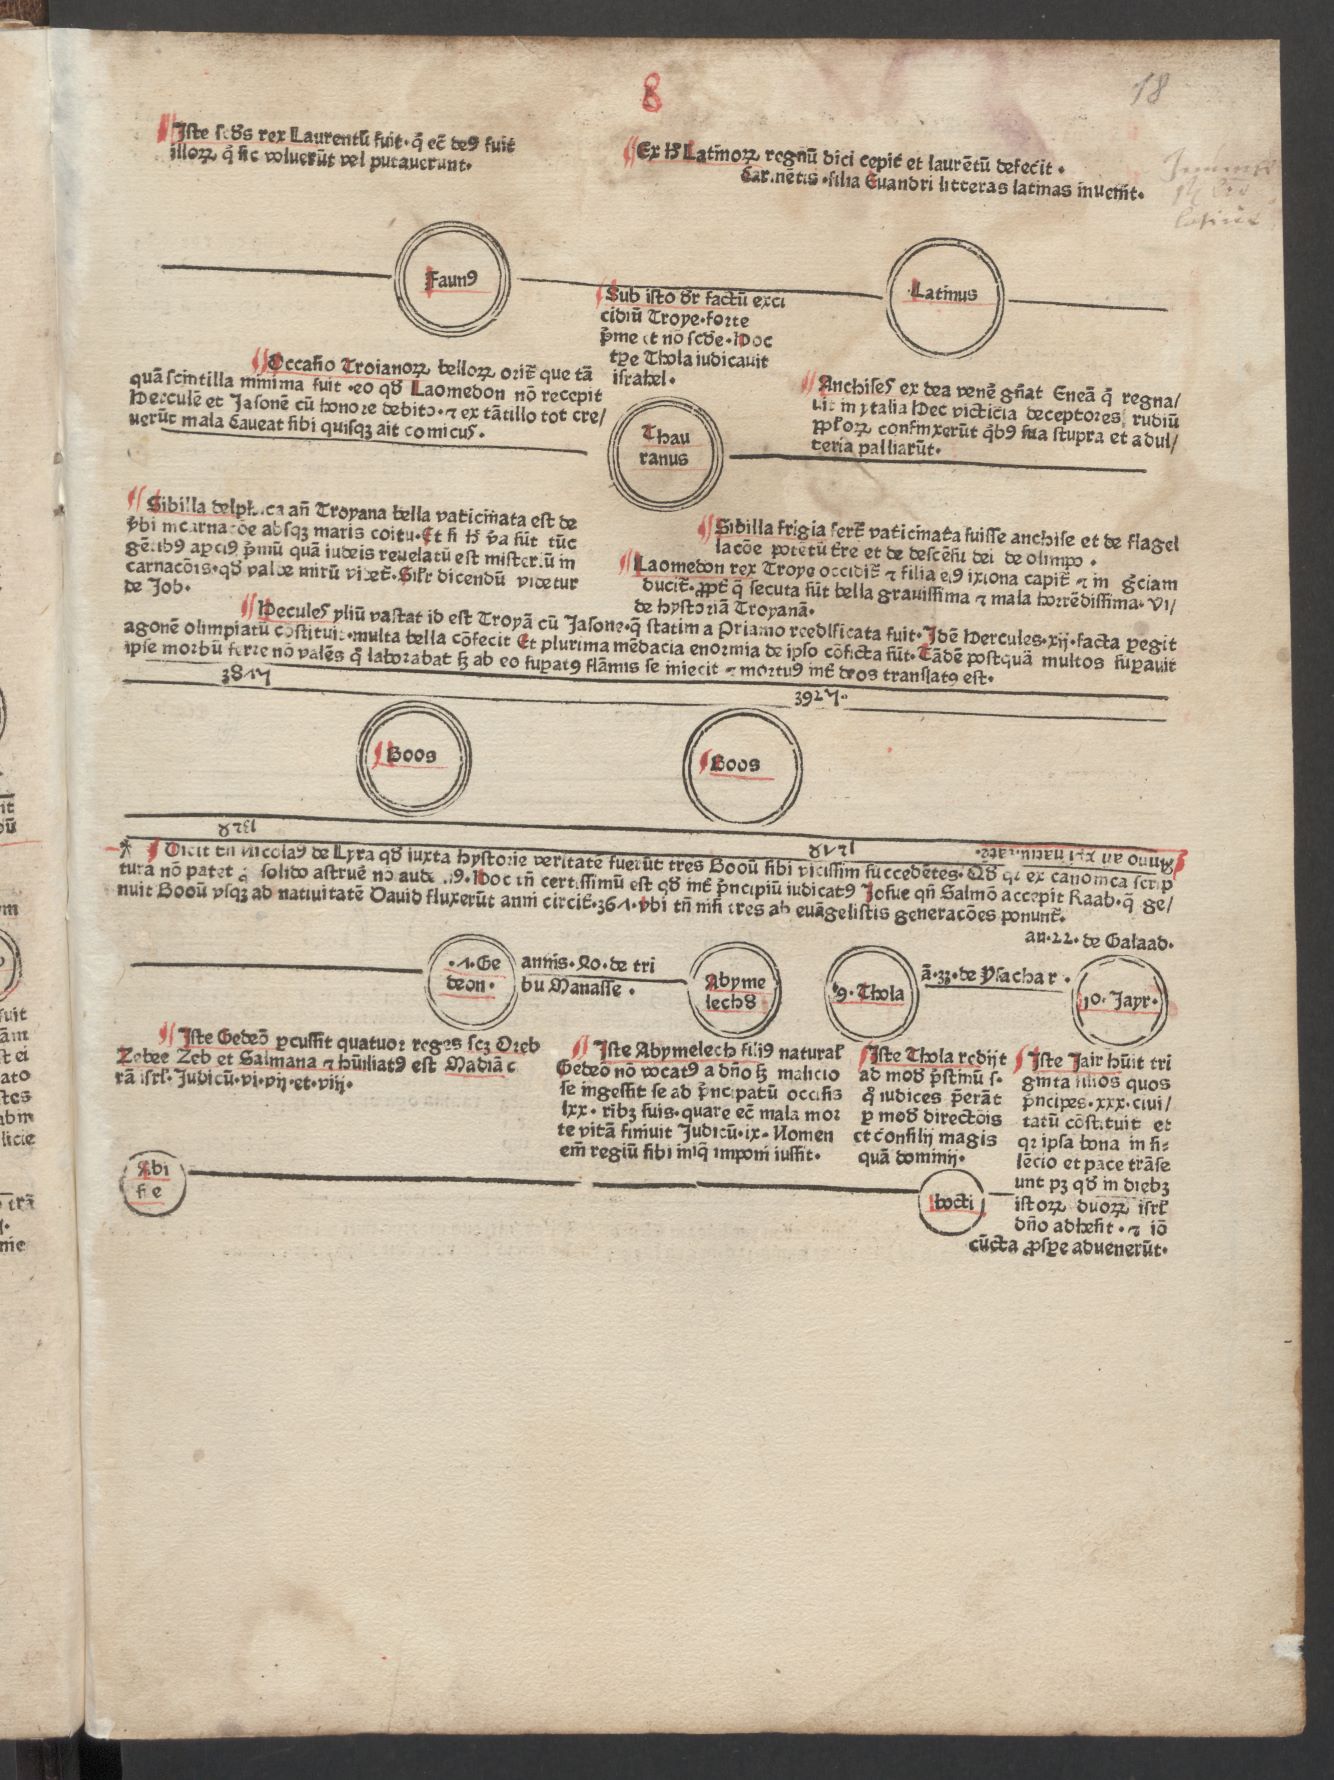 8
18
Iste scd̕s rex Laurentū fuit· q̄ ec̄ deꝰ fuit
illoꝝ q̄ sic voluerūt vel putaverunt·
Ex h̄ Latinoꝝ regnū dici cepit̄ et laurētū defecit·
Carmētis·filia Euandri litteras latinas invenit·
Faunꝰ
Latinus
Sub isto dr̄ factū exci
cidiū Troye·forte
p̄me et nō scd̄e·Hoc
tp̄e Thola iudicauit
israhel·
Occasio Troianoꝝ belloꝝ orit̄ que tā
quā scintilla minima fuit·eo qd̕ Laomedon nō recepit
Herculē et Jasonē cū honore debito·⁊ ex tātillo tot cre/
verūt mala Caveat sibi quisqꝫ ait comicus·
Anchises ex dea venē gn̄at Eneā q̄ regna/
uit in ytalia Hec victicia deceptores rudiū
pp̄loꝝ confinxerūt q̄bꝰ sua stupra et adul/
teria palliarūt·
Thau
ranus
Sibilla delphica an̄ Troyana bella vaticinata est de
v̄bi incarnacōe absqꝫ maris coitu·Et si h̄ v̄a sūt tūc
gētibꝰ apciꝰ p̄mū quā iudeis reuelatū est misteriū in
carnacōis·qd̕ valde mirū videt̄·Silr̄ dicendū videtur
de Job·
Sibilla frigia fert̄ vaticinata fuisse anchise et de flagel
lacōe potētū t̄re et de descēsu dei de olimpo·
Laomedon rex Troye occidit̄ ⁊ filia eiꝰ ixiona capit̄ ⁊ in greciam
ducit̄·ꝓpt̄ q̄ secuta sūt bella gravissima ⁊ mala horrēdissima·Vi/
de hystoriā Troyanā·
Hecules yliū vastat id est Troyā cū Jasone·q̄ statim a Priamo reedificata fuit·Idē Hercules·xij·facta pegit
agonē olimpiatū cōstituit·multa bella cōfecit Et plurima mēdacia enormia de ipso cōficta sūt·Tādē postquā multos supavit
ipse morbū ferre nō valēs q̄ laborabat sꝫ ab eo supatꝰ flāmis se iniecit ⁊ mortuꝰ int̄ deos translatꝰ est·
3817
3927·
Boos
Boos
1378
1278
Anno an xp̄i nativitatē·
Dicit tn̄ Nicolaꝰ de Lyra qd̕ iuxta hystorie veritatē fuerūt tres Booū sibi vicissim succedētes·Qd̕ qr ex canonica scrip
tura nō patet solido astruē nō aude Hoc tn̄ certissimū est qd̕ int̄ p̄ncipiū iudicatꝰ Josue qn̄ Salmō accepit Raab·q̄ ge/
nuit Booū vsqꝫ ad nativitatē David fluxerūt anni circit̄·361·vbi tn̄ nisi tres ab euāgelistis generacōes ponunt̄·
an·22·de Galaad·
·7·Ge
deon·
annis·40·de tri
bu Manasse·
Abyme
lech8
9·Thola
ā·23·de Ysachar·
10·Jayr·
Iste Gedeō pcussit quatuor reges scꝫ Oreb
Zebee Zeb et Salmana ⁊ hūiliatꝰ est Madiā c
rā isrl̄·Judicū·vi·vij·et·viij·
Iste Abymelech filiꝰ natural̄
Gedeō nō vocatꝰ a dn̄o sꝫ malicio
se ingessit se ad p̄ncipatū occisis
lxx·fribꝫ suis·quare ec̄ mala mor
te vitā finivit Judicū·ix·Nomen
em̄ regiū sibi iniq̄ imponi iussit·
Iste Thola redijt
ad mod̕ p̄stinū s·
q̄ iudices p̄erāt
p mod̕ directōis
et cōsilij magis
quā dominij·
Iste Jair hūit tri
ginta filios quos
p̄ncipes·xxx·civi/
tatū cōstituit et
qr ipsa bona in si-
lēcio et pace trāse
unt pꝫ qd̕ in diebꝫ
istoꝝ duoꝝ isrl̄
dn̄o adhesit·⁊ iō
cūcta ꝓspe advenerūt·
Abi
sue
bocti